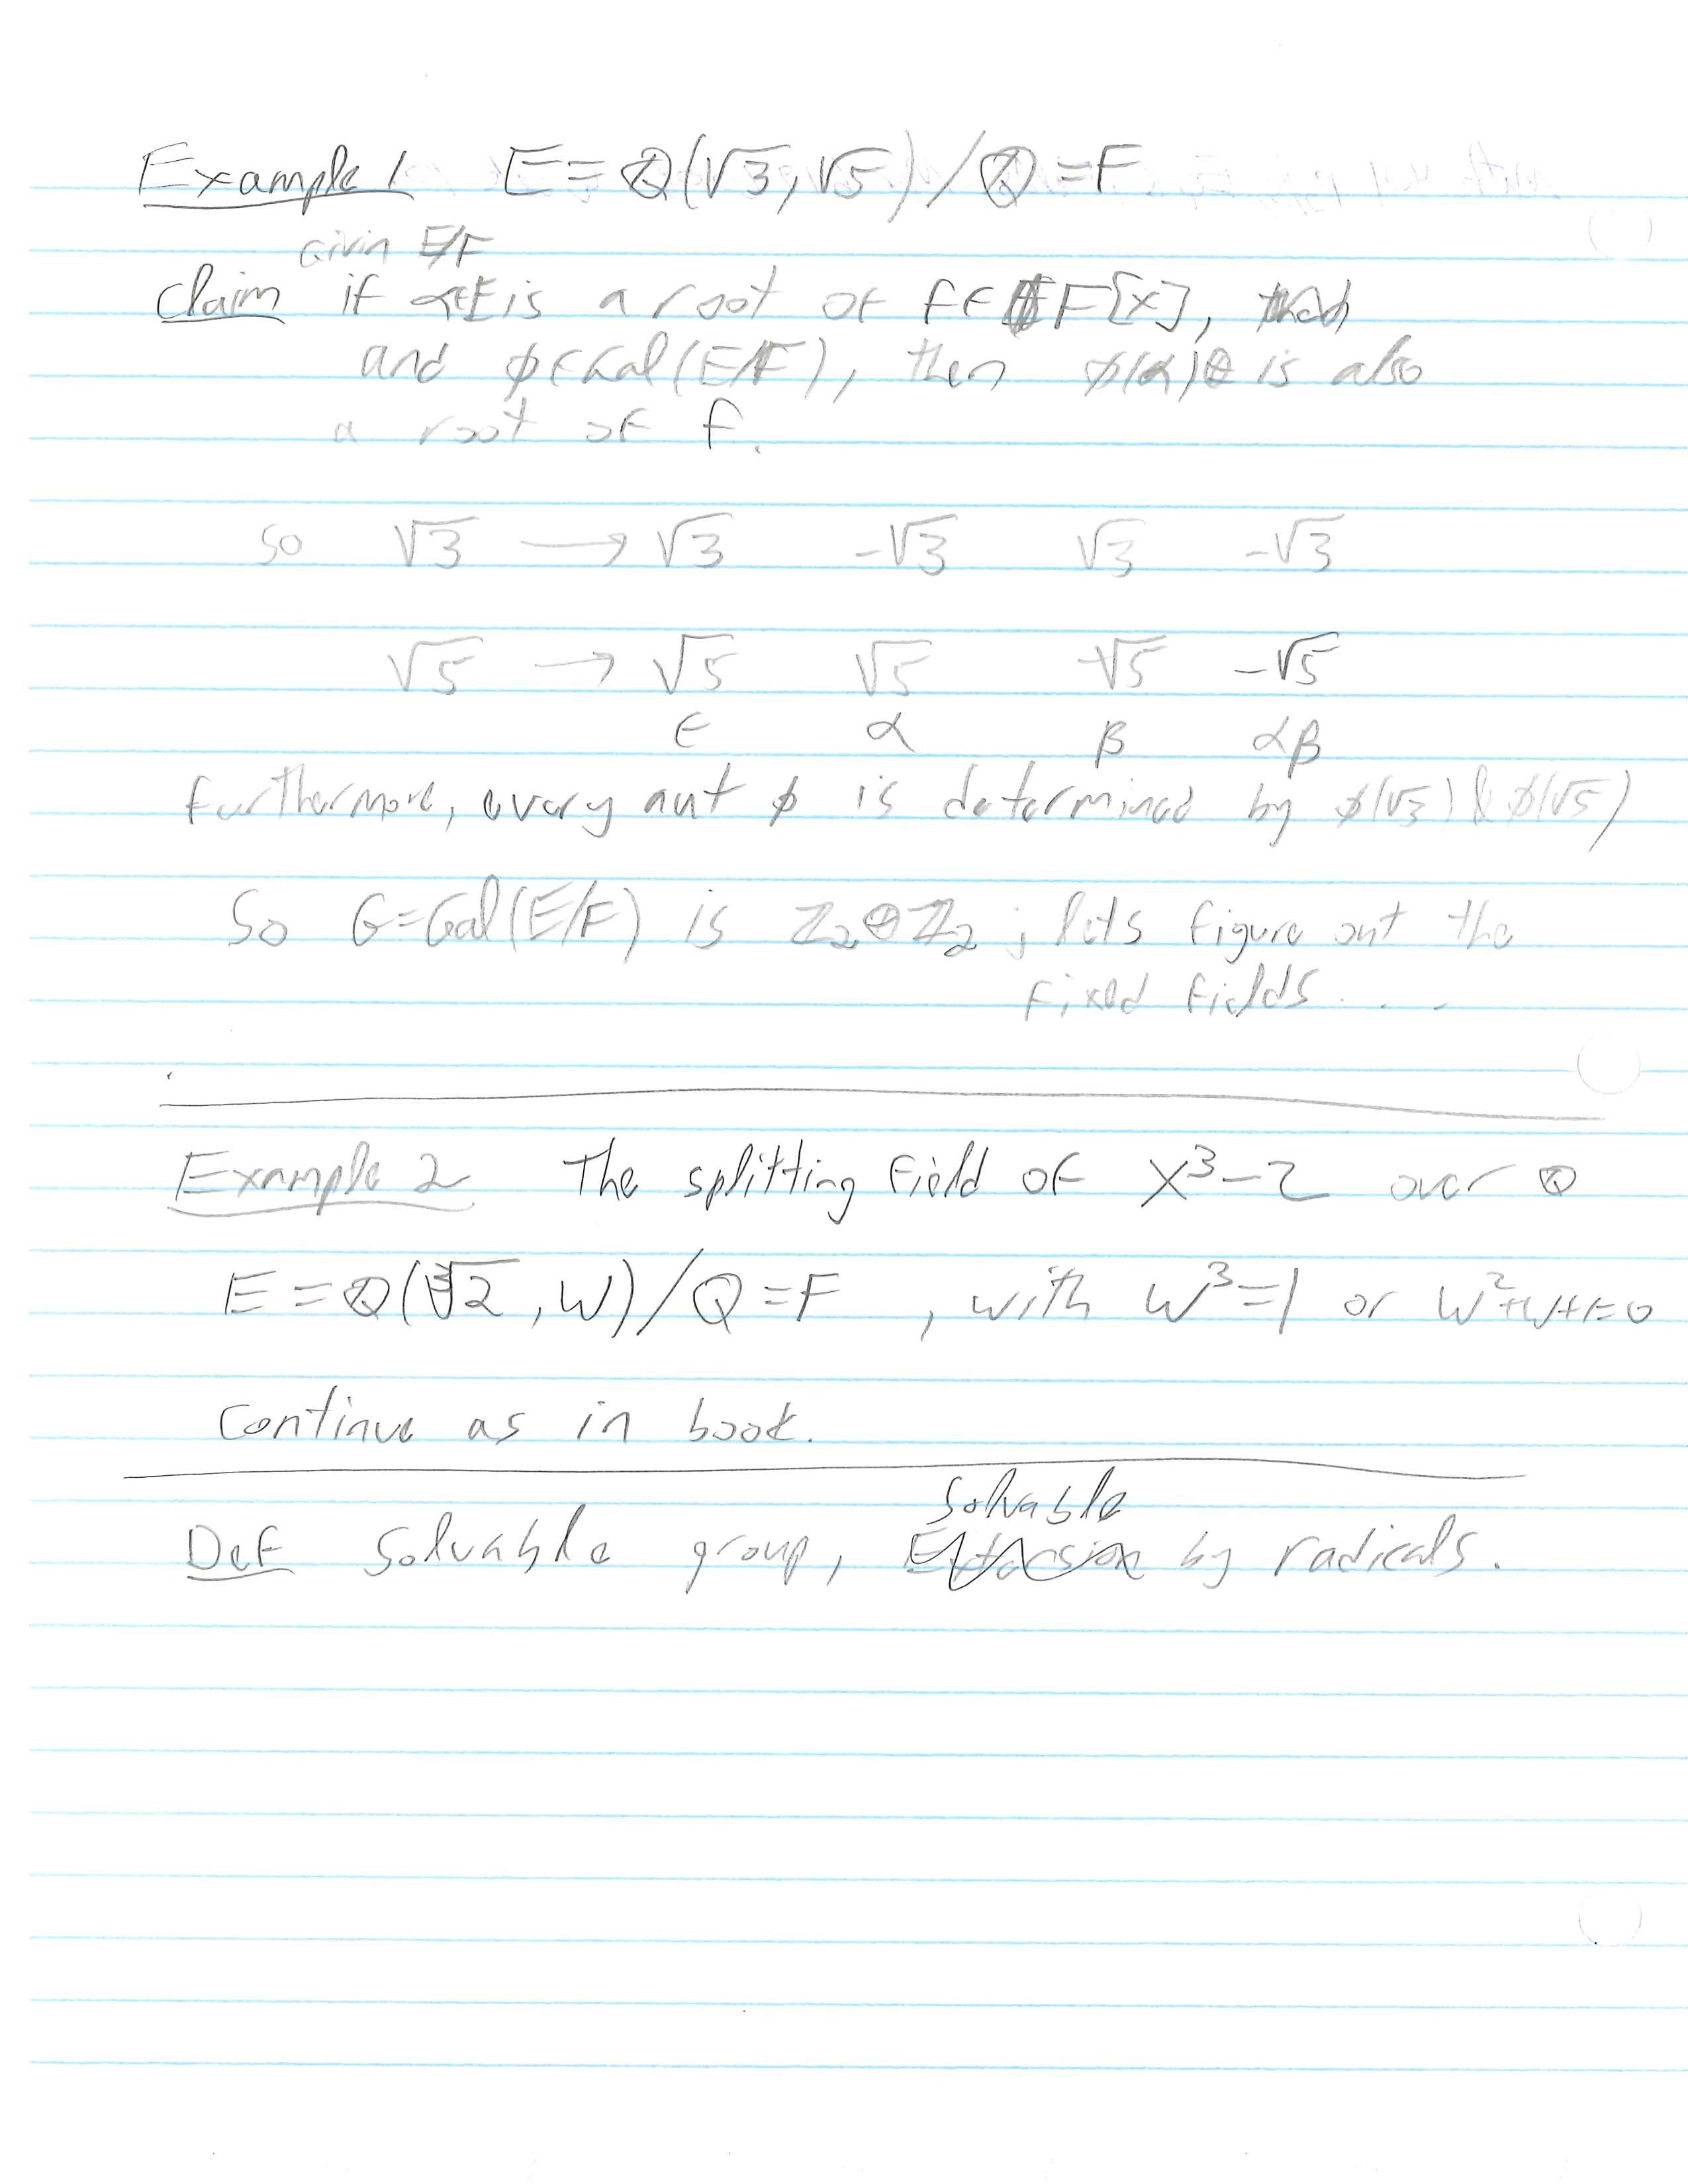 Example 1 E = Q(√3, √5) / Q = F
Givin E/F
Claim if α∈E is a root of f∈F[x],
and ϕ∈Gal(E/F), then ϕ(α) is also
a root of f.
So √3 → √3 -√3 √3 -√3
√5 → √5 √5 -√5 -√5
ϵ α β αβ
furthermore, every aut ϕ is determined by ϕ(√3) & ϕ(√5)
So G=Gal(E/F) is Z₂⊕Z₂ ; lets figure out the
fixed fields . . .
Example 2 The splitting field of x³-2 over Q
E = Q(∛2, W) / Q = F , with W³=1 or W²+W+1=0
Continue as in book.
Solvable
Def Solvable group, by radicals.